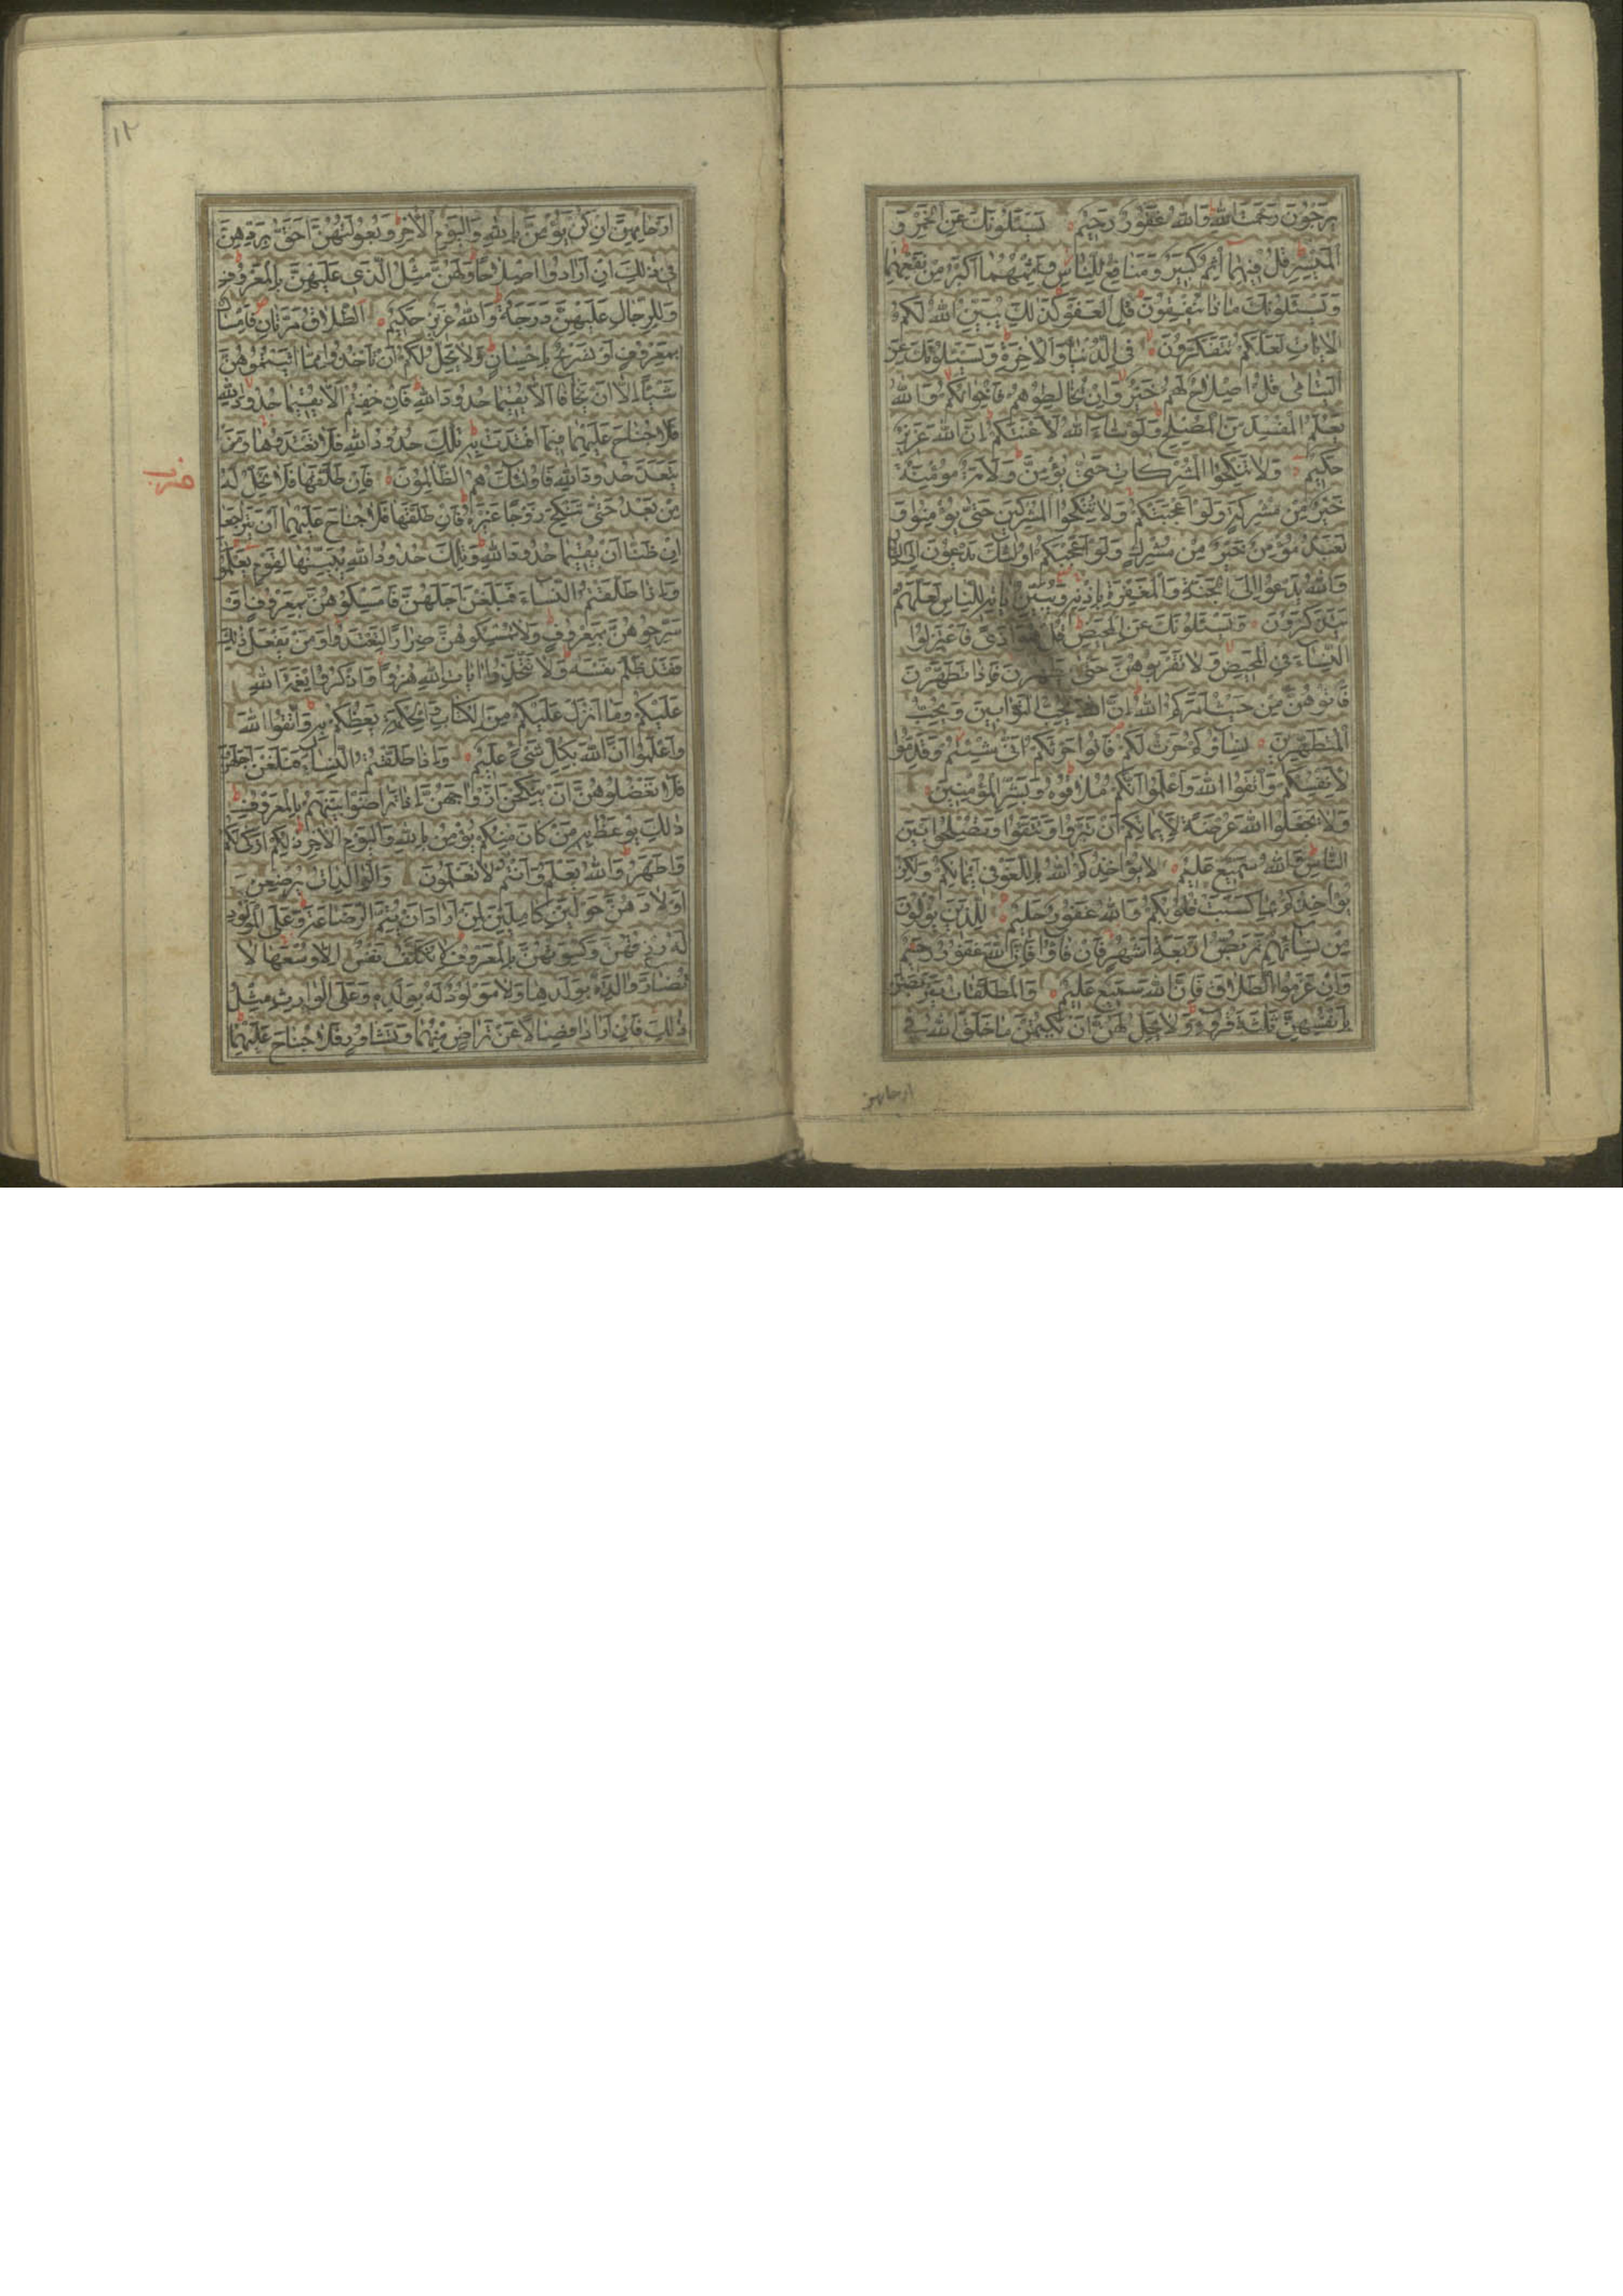 يَرْجُونَ رَحْمَتَ اللّٰهِ وَاللّٰهُ غَفُورٌ رَحِيمٌ يَسْئَلُونَكَ عَنِ الْخَمْرِ وَ
الْمَيْسِرِ قُلْ فِيهِمَا اِثْمٌ كَبِيرٌ وَمَنَافِعُ لِلنَّاسِ وَاِثْمُهُمَا اَكْبَرُ مِنْ نَفْعِهِمَا
وَيَسْئَلُونَكَ مَاذَا يُنْفِقُونَ قُلِ الْعَفْوَ كَذٰلِكَ يُبَيِّنُ اللّٰهُ لَكُمُ
الْاٰيَاتِ لَعَلَّكُمْ تَتَفَكَّرُونَ فِي الدُّنْيَا وَالْاٰخِرَةِ وَيَسْئَلُونَكَ عَنِ
الْيَتَامٰى قُلْ اِصْلَاحٌ لَهُمْ خَيْرٌ وَاِنْ تُخَالِطُوهُمْ فَاِخْوَانُكُمْ وَاللّٰهُ
يَعْلَمُ الْمُفْسِدَ مِنَ الْمُصْلِحِ وَلَوْ شَاءَ اللّٰهُ لَاَعْنَتَكُمْ اِنَّ اللّٰهَ عَزِيزٌ
حَكِيمٌ وَلَا تَنْكِحُوا الْمُشْرِكَاتِ حَتّٰى يُؤْمِنَّ وَلَاَمَةٌ مُؤْمِنَةٌ
خَيْرٌ مِنْ مُشْرِكَةٍ وَلَوْ اَعْجَبَتْكُمْ وَلَا تُنْكِحُوا الْمُشْرِكِينَ حَتّٰى يُؤْمِنُوا وَ
لَعَبْدٌ مُؤْمِنٌ خَيْرٌ مِنْ مُشْرِكٍ وَلَوْ اَعْجَبَكُمْ اُولٰئِكَ يَدْعُونَ اِلَى النَّارِ
وَاللّٰهُ يَدْعُوا اِلَى الْجَنَّةِ وَالْمَغْفِرَةِ بِاِذْنِهِ وَيُبَيِّنُ اٰيَاتِهِ لِلنَّاسِ لَعَلَّهُمْ
يَتَذَكَّرُونَ وَيَسْئَلُونَكَ عَنِ الْمَحِيضِ قُلْ هُوَ اَذًى فَاعْتَزِلُوا
النِّسَاءَ فِي الْمَحِيضِ وَلَا تَقْرَبُوهُنَّ حَتّٰى يَطْهُرْنَ فَاِذَا تَطَهَّرْنَ
فَأْتُوهُنَّ مِنْ حَيْثُ اَمَرَكُمُ اللّٰهُ اِنَّ اللّٰهَ يُحِبُّ التَّوَّابِينَ وَيُحِبُّ
الْمُتَطَهِّرِينَ نِسَاؤُكُمْ حَرْثٌ لَكُمْ فَأْتُوا حَرْثَكُمْ اَنّٰى شِئْتُمْ وَقَدِّمُوا
لِاَنْفُسِكُمْ وَاتَّقُوا اللّٰهَ وَاعْلَمُوا اَنَّكُمْ مُلَاقُوهُ وَبَشِّرِ الْمُؤْمِنِينَ
وَلَا تَجْعَلُوا اللّٰهَ عُرْضَةً لِاَيْمَانِكُمْ اَنْ تَبَرُّوا وَتَتَّقُوا وَتُصْلِحُوا بَيْنَ
النَّاسِ وَاللّٰهُ سَمِيعٌ عَلِيمٌ لَا يُؤَاخِذُكُمُ اللّٰهُ بِاللَّغْوِ فِي اَيْمَانِكُمْ وَلٰكِنْ
يُؤَاخِذُكُمْ بِمَا كَسَبَتْ قُلُوبُكُمْ وَاللّٰهُ غَفُورٌ حَلِيمٌ لِلَّذِينَ يُؤْلُونَ
مِنْ نِسَائِهِمْ تَرَبُّصُ اَرْبَعَةِ اَشْهُرٍ فَاِنْ فَاؤُا فَاِنَّ اللّٰهَ غَفُورٌ رَحِيمٌ
وَاِنْ عَزَمُوا الطَّلَاقَ فَاِنَّ اللّٰهَ سَمِيعٌ عَلِيمٌ وَالْمُطَلَّقَاتُ يَتَرَبَّصْنَ
بِاَنْفُسِهِنَّ ثَلٰثَةَ قُرُوءٍ وَلَا يَحِلُّ لَهُنَّ اَنْ يَكْتُمْنَ مَا خَلَقَ اللّٰهُ فِي
ارحامهن
١٢
اَرْحَامِهِنَّ اِنْ كُنَّ يُؤْمِنَّ بِاللّٰهِ وَالْيَوْمِ الْاٰخِرِ وَبُعُولَتُهُنَّ اَحَقُّ بِرَدِّهِنَّ
فِي ذٰلِكَ اِنْ اَرَادُوا اِصْلَاحًا وَلَهُنَّ مِثْلُ الَّذِي عَلَيْهِنَّ بِالْمَعْرُوفِ
وَلِلرِّجَالِ عَلَيْهِنَّ دَرَجَةٌ وَاللّٰهُ عَزِيزٌ حَكِيمٌ اَلطَّلَاقُ مَرَّتَانِ فَاِمْسَاكٌ
بِمَعْرُوفٍ اَوْ تَسْرِيحٌ بِاِحْسَانٍ وَلَا يَحِلُّ لَكُمْ اَنْ تَأْخُذُوا مِمَّا اٰتَيْتُمُوهُنَّ
شَيْئًا اِلَّا اَنْ يَخَافَا اَلَّا يُقِيمَا حُدُودَ اللّٰهِ فَاِنْ خِفْتُمْ اَلَّا يُقِيمَا حُدُودَ اللّٰهِ
فَلَا جُنَاحَ عَلَيْهِمَا فِيمَا افْتَدَتْ بِهِ تِلْكَ حُدُودُ اللّٰهِ فَلَا تَعْتَدُوهَا وَمَنْ
يَتَعَدَّ حُدُودَ اللّٰهِ فَاُولٰئِكَ هُمُ الظَّالِمُونَ فَاِنْ طَلَّقَهَا فَلَا تَحِلُّ لَهُ
مِنْ بَعْدُ حَتّٰى تَنْكِحَ زَوْجًا غَيْرَهُ فَاِنْ طَلَّقَهَا فَلَا جُنَاحَ عَلَيْهِمَا اَنْ يَتَرَاجَعَا
اِنْ ظَنَّا اَنْ يُقِيمَا حُدُودَ اللّٰهِ وَتِلْكَ حُدُودُ اللّٰهِ يُبَيِّنُهَا لِقَوْمٍ يَعْلَمُونَ
وَاِذَا طَلَّقْتُمُ النِّسَاءَ فَبَلَغْنَ اَجَلَهُنَّ فَاَمْسِكُوهُنَّ بِمَعْرُوفٍ اَوْ
سَرِّحُوهُنَّ بِمَعْرُوفٍ وَلَا تُمْسِكُوهُنَّ ضِرَارًا لِتَعْتَدُوا وَمَنْ يَفْعَلْ ذٰلِكَ
فَقَدْ ظَلَمَ نَفْسَهُ وَلَا تَتَّخِذُوا اٰيَاتِ اللّٰهِ هُزُوًا وَاذْكُرُوا نِعْمَةَ اللّٰهِ
عَلَيْكُمْ وَمَا اَنْزَلَ عَلَيْكُمْ مِنَ الْكِتَابِ وَالْحِكْمَةِ يَعِظُكُمْ بِهِ وَاتَّقُوا اللّٰهَ
وَاعْلَمُوا اَنَّ اللّٰهَ بِكُلِّ شَيْءٍ عَلِيمٌ وَاِذَا طَلَّقْتُمُ النِّسَاءَ فَبَلَغْنَ اَجَلَهُنَّ
فَلَا تَعْضُلُوهُنَّ اَنْ يَنْكِحْنَ اَزْوَاجَهُنَّ اِذَا تَرَاضَوْا بَيْنَهُمْ بِالْمَعْرُوفِ
ذٰلِكَ يُوعَظُ بِهِ مَنْ كَانَ مِنْكُمْ يُؤْمِنُ بِاللّٰهِ وَالْيَوْمِ الْاٰخِرِ ذٰلِكُمْ اَزْكٰى لَكُمْ
وَاَطْهَرُ وَاللّٰهُ يَعْلَمُ وَاَنْتُمْ لَا تَعْلَمُونَ وَالْوَالِدَاتُ يُرْضِعْنَ
اَوْلَادَهُنَّ حَوْلَيْنِ كَامِلَيْنِ لِمَنْ اَرَادَ اَنْ يُتِمَّ الرَّضَاعَةَ وَعَلَى الْمَوْلُودِ
لَهُ رِزْقُهُنَّ وَكِسْوَتُهُنَّ بِالْمَعْرُوفِ لَا تُكَلَّفُ نَفْسٌ اِلَّا وُسْعَهَا لَا
تُضَارَّ وَالِدَةٌ بِوَلَدِهَا وَلَا مَوْلُودٌ لَهُ بِوَلَدِهِ وَعَلَى الْوَارِثِ مِثْلُ
ذٰلِكَ فَاِنْ اَرَادَا فِصَالًا عَنْ تَرَاضٍ مِنْهُمَا وَتَشَاوُرٍ فَلَا جُنَاحَ عَلَيْهِمَا